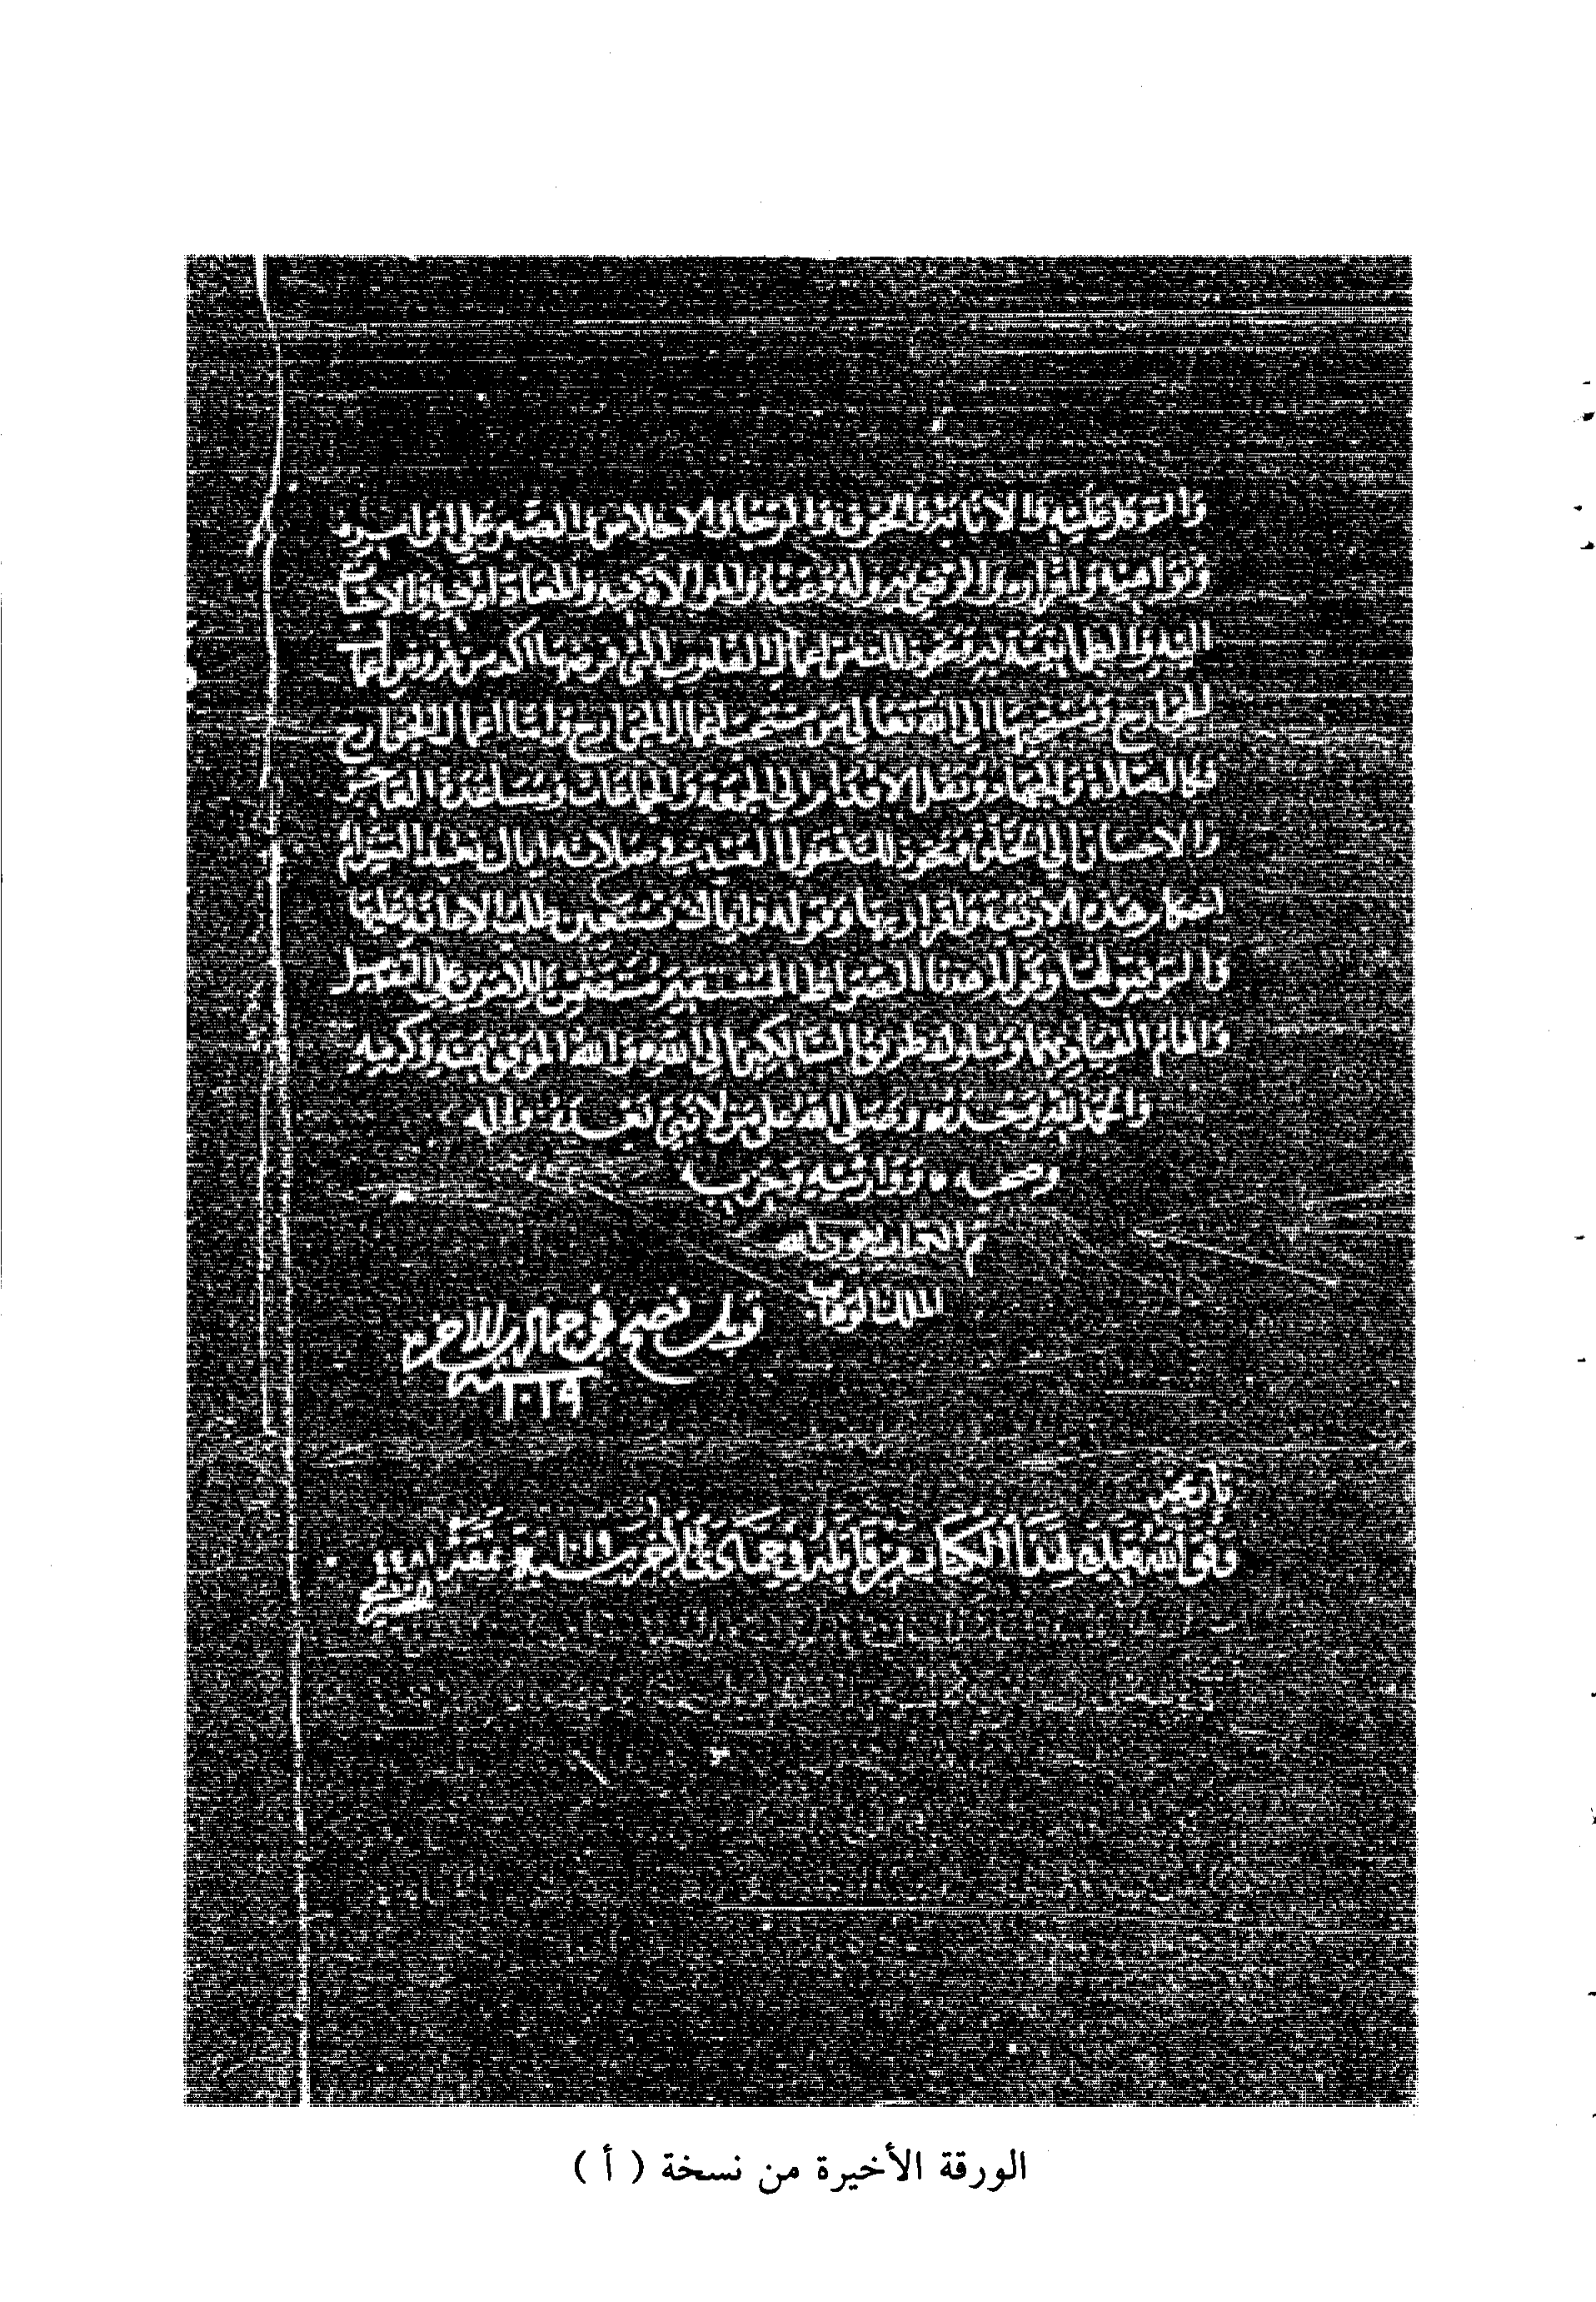 والتوكل عليه والانابة والخوف والرجاء والاخلاص والصبر على اوامره
ونواهيه واقراره والرضى به وله وعنه والموالاة فيه والمعاداة فيه والاخبات
اليه والطمانينة به ونحو ذلك من اعمال القلوب التى فرضها اكد من فرض اعمال
الجوارح ومستحبها الى الله من مستحب اعمال الجوارح واما اعمال الجوارح
فكالصلاة والجهاد ونقل الاقدام الى الجمعة والجماعات ومساعدة العاجز
والاحسان الى الخلق ونحو ذلك فقول العبد في صلاته اياك نعبد التزام
احكام هذه الاربعة واقرار بها وقوله واياك نستعين طلب الاعانة عليها
والتوفيق لها وقوله اهدنا الصراط المستقيم متضمن للامرين على التفصيل
والهام القيام بهما وسلوك طريق السالكين الى الله والله الموفق بمنه وكرمه
والحمد لله وحده وصلى الله على من لا نبي بعده واله
وصحبه ووارثيه وحزبه
تم الكتاب بعون
الملك الوهاب
قوبل فصح في جمادى الاخره
سنة
تاريخ
الكتاب
الورقة الأخيرة من نسخة ( أ )